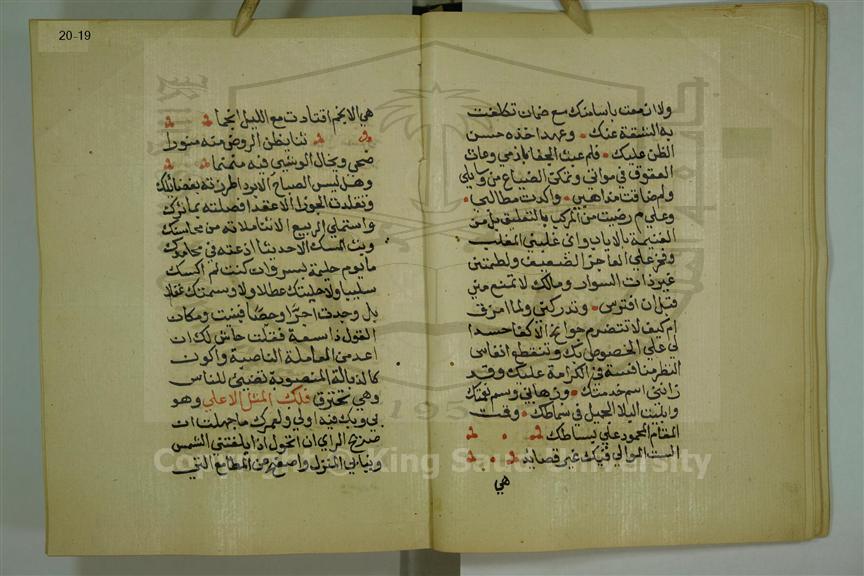 20-19
ولا ان معت باسلمتك مع ضمان تكلفت
به الثقة عنك وعهد اخذه حسن
الظن عليك فلم عبث الجفا باذمي وعاث
العقوق في مواتي وتمكن الضياع من وسايلي
ولم ضاقت مذاهبي واكدت مطالبي
وعلى م رضيت من المركب بالتعليق بل من
الغنيمة بالاياب واني غلبني المغلب
وفخر علي العاجز الضعيف ولطمتني
غير ذات السوار ومالك لا تمنع مني
قبل ان افترس وتدركني ولما امزق
ام كيف لا تتضرم جوانح الاكفا حسدا
لي على الخصوص بك وتتقطع انفاس
النظر منافسة في الكرامة عليك وقد
زانني اسم خدمتك وزهاني وسم نعمتك
وابليت البلا الجميل في سماطك وقمت
المقام المحمود على بساطك
الست الموالي فيك غير قصايد
هي
هي الانجم اقتادت مع الليل انجما
ثنا يظن الروض منه منورا
ضحى ويخال الوشي فيه منمنما
وهل لبس الصباح الا بردا طرزته بفضائلك
وتقلدت الجوزا الا عقدا فصلته بمآثرك
واستملى الربيع الا ثنا ملاته من محاسنك
وبث المسك الا حديثا اذعته في محامدك
ما يوم حليمة بسر وان كنت لم اكسك
سليبا ولا حليتك عطلا ولا وسمتك غفلا
بل وجدت اجرا وجصا فبنيت ومكان
القول ذا سعة فقلت حاش لك ان
اعد من العاملة الناصبة واكون
كالذبالة المنصوبة تضيئ للناس
وهي تحترق فلك المثل الاعلى وهو
بي وبك فيه اولى ولعمرك ما جهلت ان
صريح الراي ان اتحول اذا بلغتني الشمس
ونبا بي المنزل واصفح عن المطامع التي